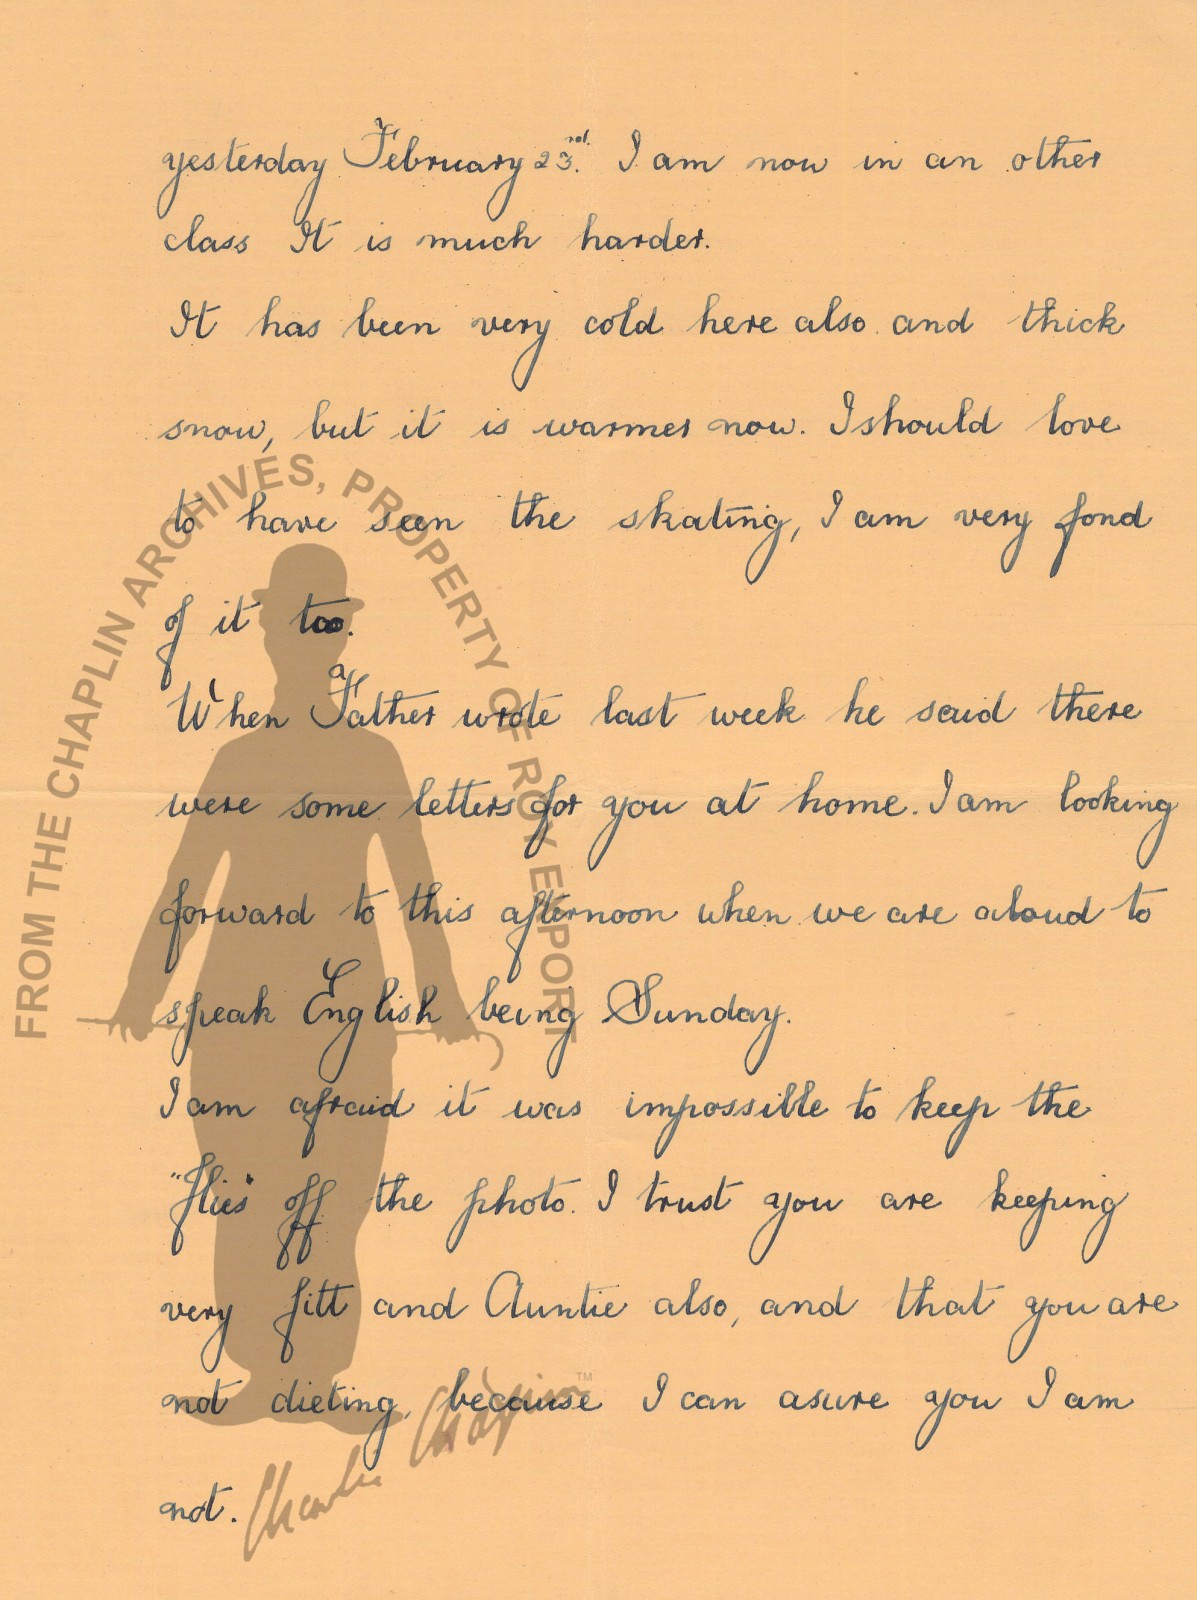 yesterday February 23rd. I am now in an other
class It is much harder.
It has been very cold here also and thick
snow, but it is warmer now. I should love
to have seen the skating, I am very fond
of it too.
When Father wrote last week he said there
were some letters for you at home. I am looking
forward to this afternoon when we are aloud to
speak English being Sunday.
I am afraid it was impossible to keep the
"flies" off the photo. I trust you are keeping
very fitt and Auntie also, and that you are
not dieting, because I can asure you I am
not.
FROM THE CHAPLIN ARCHIVES, PROPERTY OF ROY EXPORT
Charlie Chaplin TM